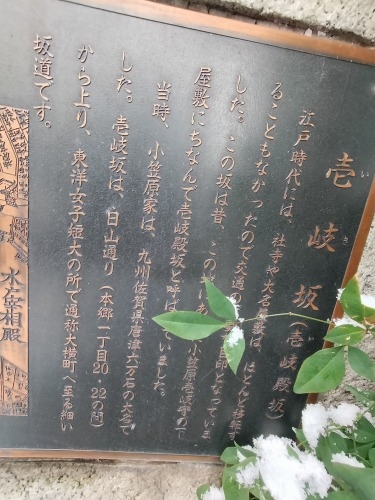 壱岐坂(壱岐殿坂
いき
江戸時代には、社寺や大名屋敷は、ほとんど移転
ることもなかったので交通の目印となっていま
した。この坂は昔、この小笠原壱岐守の下
屋敷にちなんで壱岐殿坂と呼いました。
当時、小笠原家は、九州佐賀県唐津六万石の大名で
した。壱岐坂は、白山通り(本郷一丁目20・22の間)
から上り、東洋女子短大の所で通称大横町へ至る細い
坂道です。
水
相殿